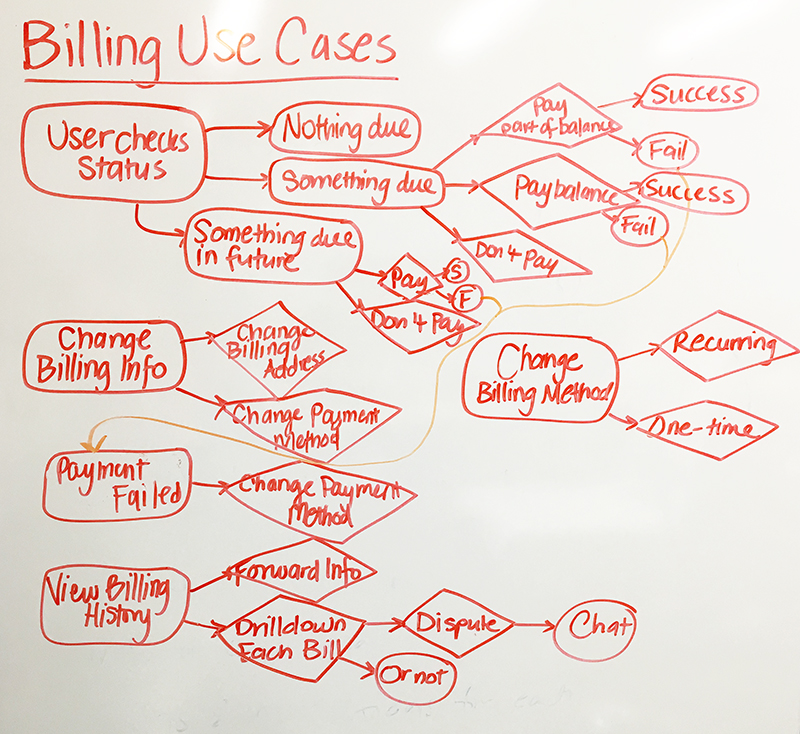 Billing Use Cases
User checks
Status
Nothing due
Something due
Pay
part of balance
Success
Fail
Pay balance
Success
Fail
Don't Pay
Something due
in future
Pay
S
F
Don't Pay
Change
Billing Info
Change
Billing
Address
Change Payment
Method
Change
Billing Method
Recurring
One-time
Payment
Failed
Change Payment
Method
View Billing
History
Forward Info
Drilldown
Each Bill
Dispute
Chat
Or not